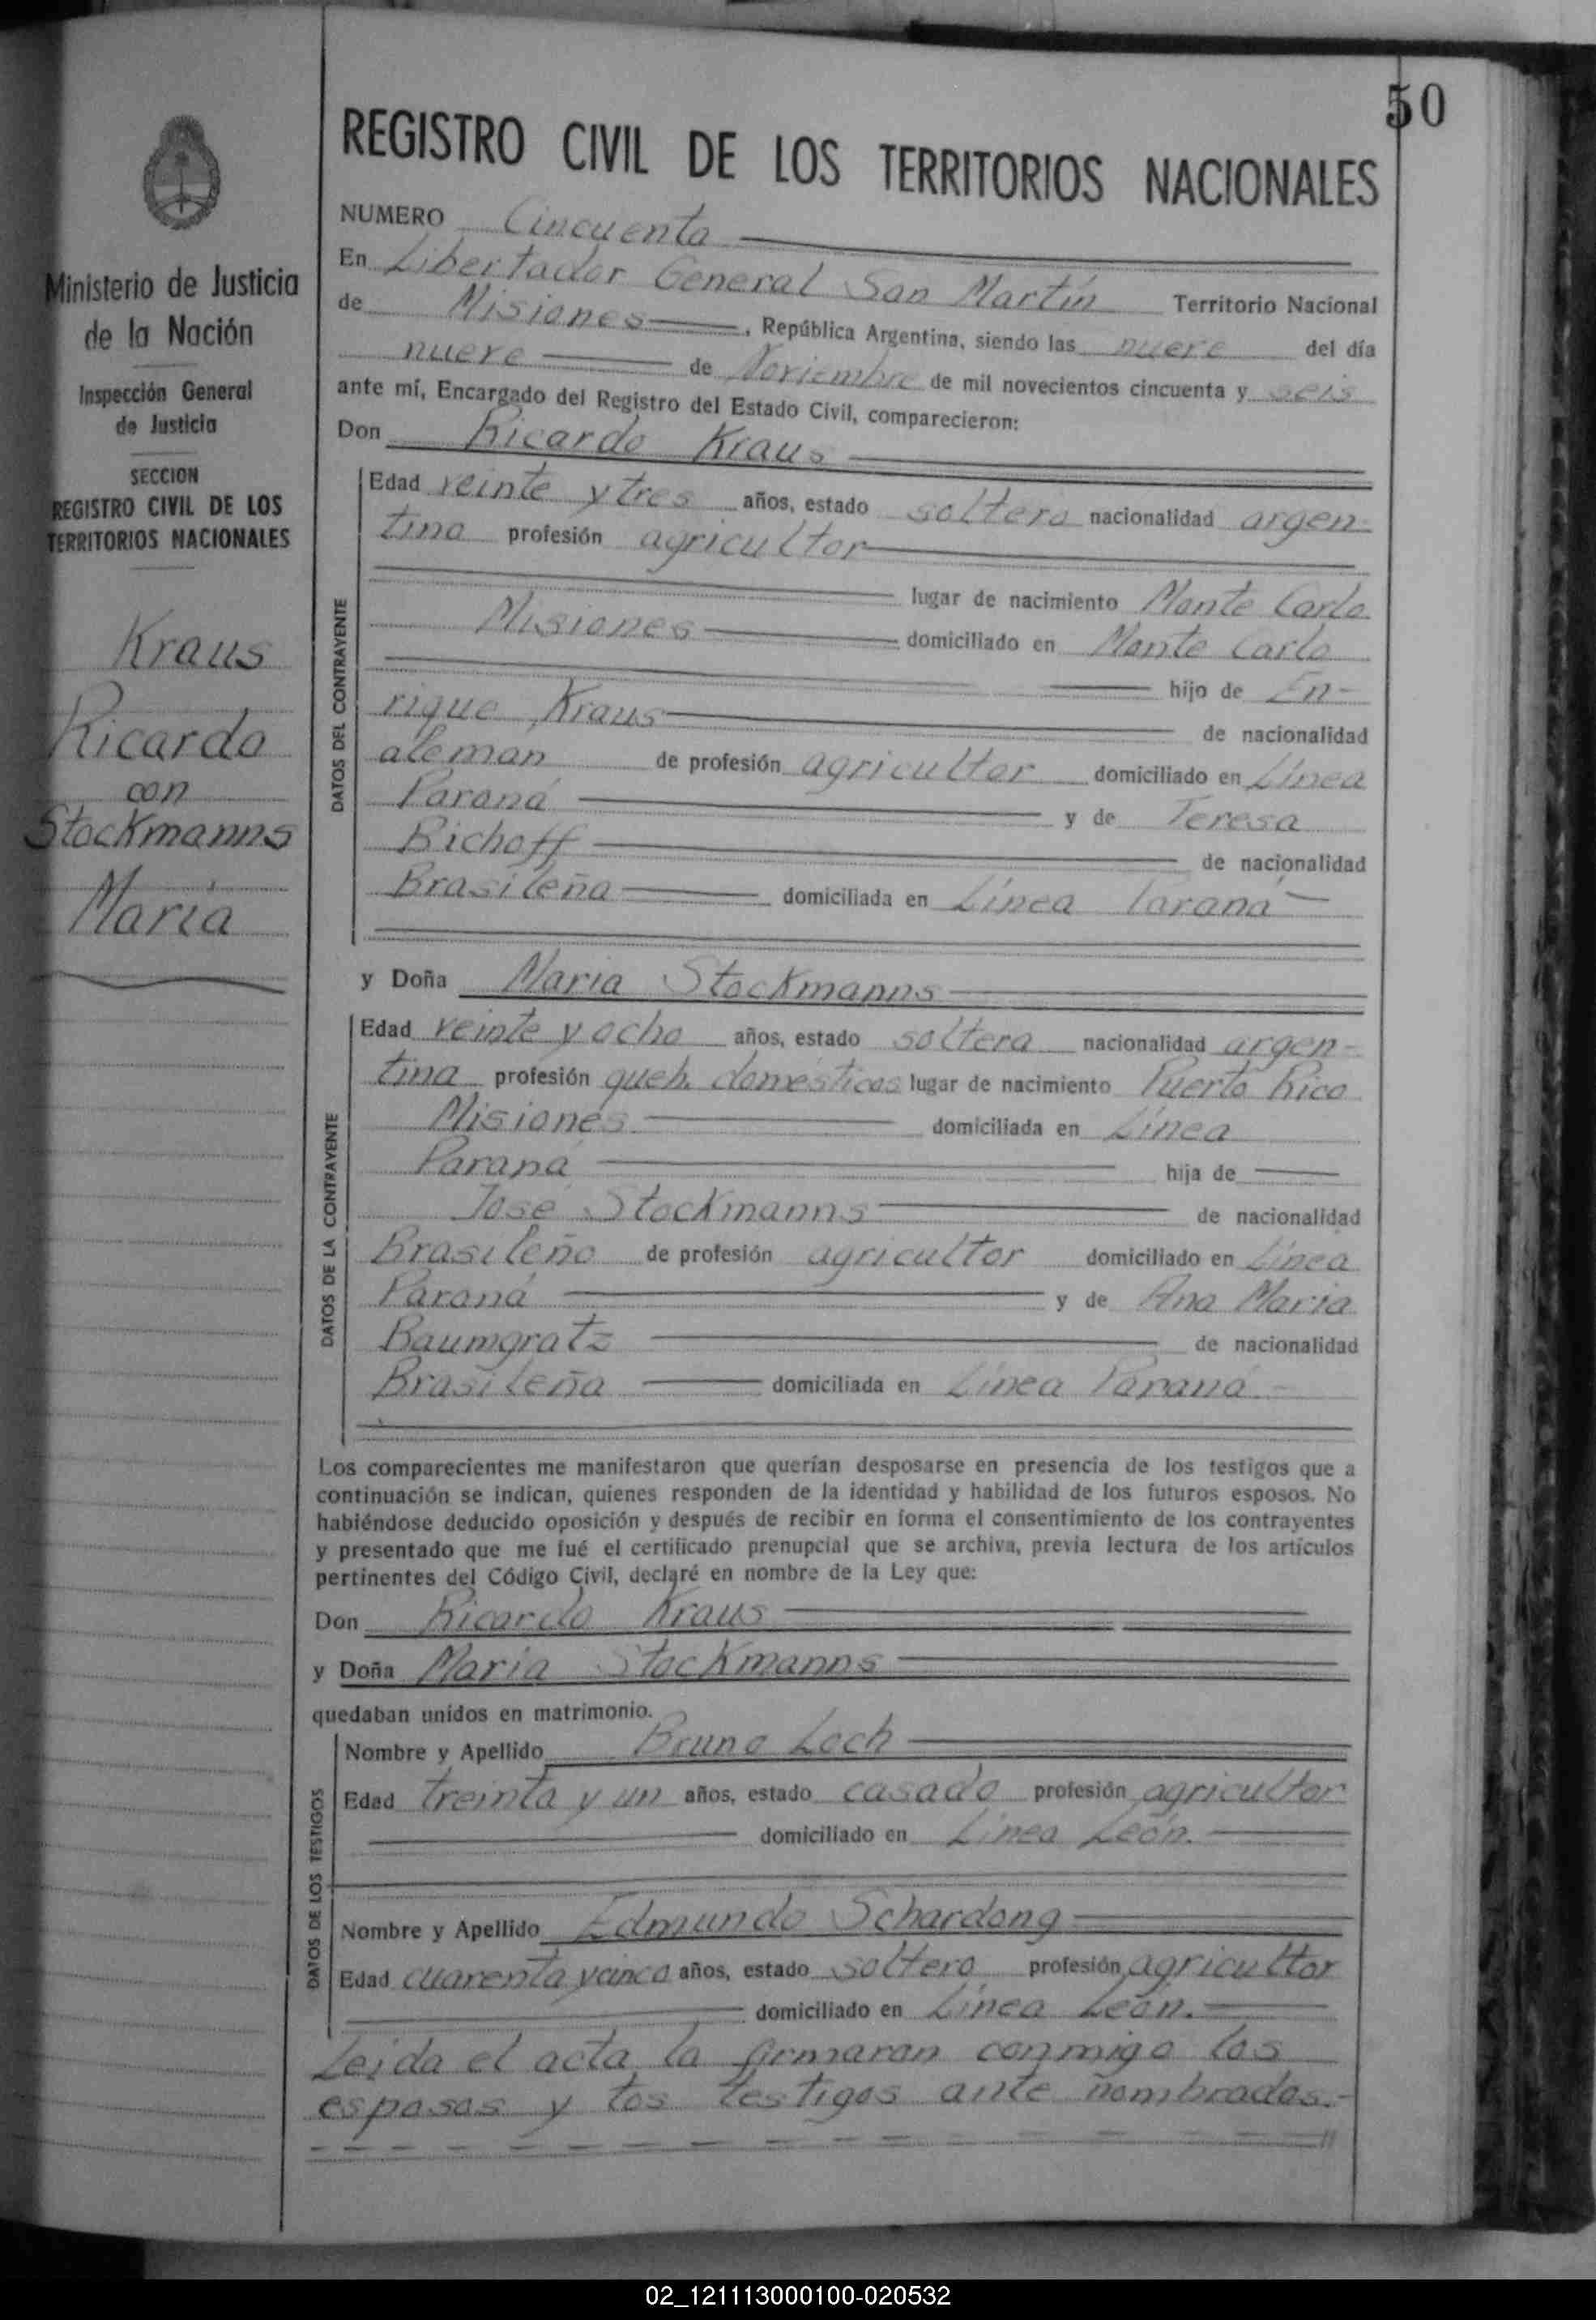 50
REGISTRO CIVIL DE LOS TERRITORIOS NACIONALES
Ministerio de Justicia
de la Nación
Inspección General
de Justicia
SECCION
REGISTRO CIVIL DE LOS
TERRITORIOS NACIONALES
Kraus
Ricardo
con
Stockmanns
María
NUMERO Cincuenta
En Libertador General San Martín Territorio Nacional
de Misiones, República Argentina, siendo las nueve del día
nueve de Noviembre de mil novecientos cincuenta y seis
ante mí, Encargado del Registro del Estado Civil, comparecieron:
Don Ricardo Kraus
DATOS DEL CONTRAYENTE
Edad veinte y tres años, estado soltero nacionalidad argen-
tino profesión agricultor
lugar de nacimiento Monte Carlo
Misiones domiciliado en Monte Carlo
hijo de En-
rique Kraus de nacionalidad
aleman de profesión agricultor domiciliado en Línea
Paraná y de Teresa
Bichoff de nacionalidad
Brasileña domiciliada en Línea Paraná
y Doña Maria Stockmanns
DATOS DE LA CONTRAYENTE
Edad veinte y ocho años, estado soltera nacionalidad argen-
tina profesión queh. domésticos lugar de nacimiento Puerto Rico
Misiones domiciliada en Línea
Paraná hija de
José Stockmanns de nacionalidad
Brasileño de profesión agricultor domiciliado en Línea
Paraná y de Ana Maria
Baumgratz de nacionalidad
Brasileña domiciliada en Línea Paraná
Los comparecientes me manifestaron que querían desposarse en presencia de los testigos que a
continuación se indican, quienes responden de la identidad y habilidad de los futuros esposos. No
habiéndose deducido oposición y después de recibir en forma el consentimiento de los contrayentes
y presentado que me fué el certificado prenupcial que se archiva, previa lectura de los artículos
pertinentes del Código Civil, declaré en nombre de la Ley que:
Don Ricardo Kraus
y Doña Maria Stockmanns
quedaban unidos en matrimonio.
DATOS DE LOS TESTIGOS
Nombre y Apellido Bruno Loch
Edad treinta y un años, estado casado profesión agricultor
domiciliado en Línea León.
Nombre y Apellido Edmundo Schardong
Edad cuarenta y cinco años, estado soltero profesión agricultor
domiciliado en Línea León.
Leida el acta la firmaran conmigo los
esposos y los testigos ante nombrados.-
02_121113000100-020532